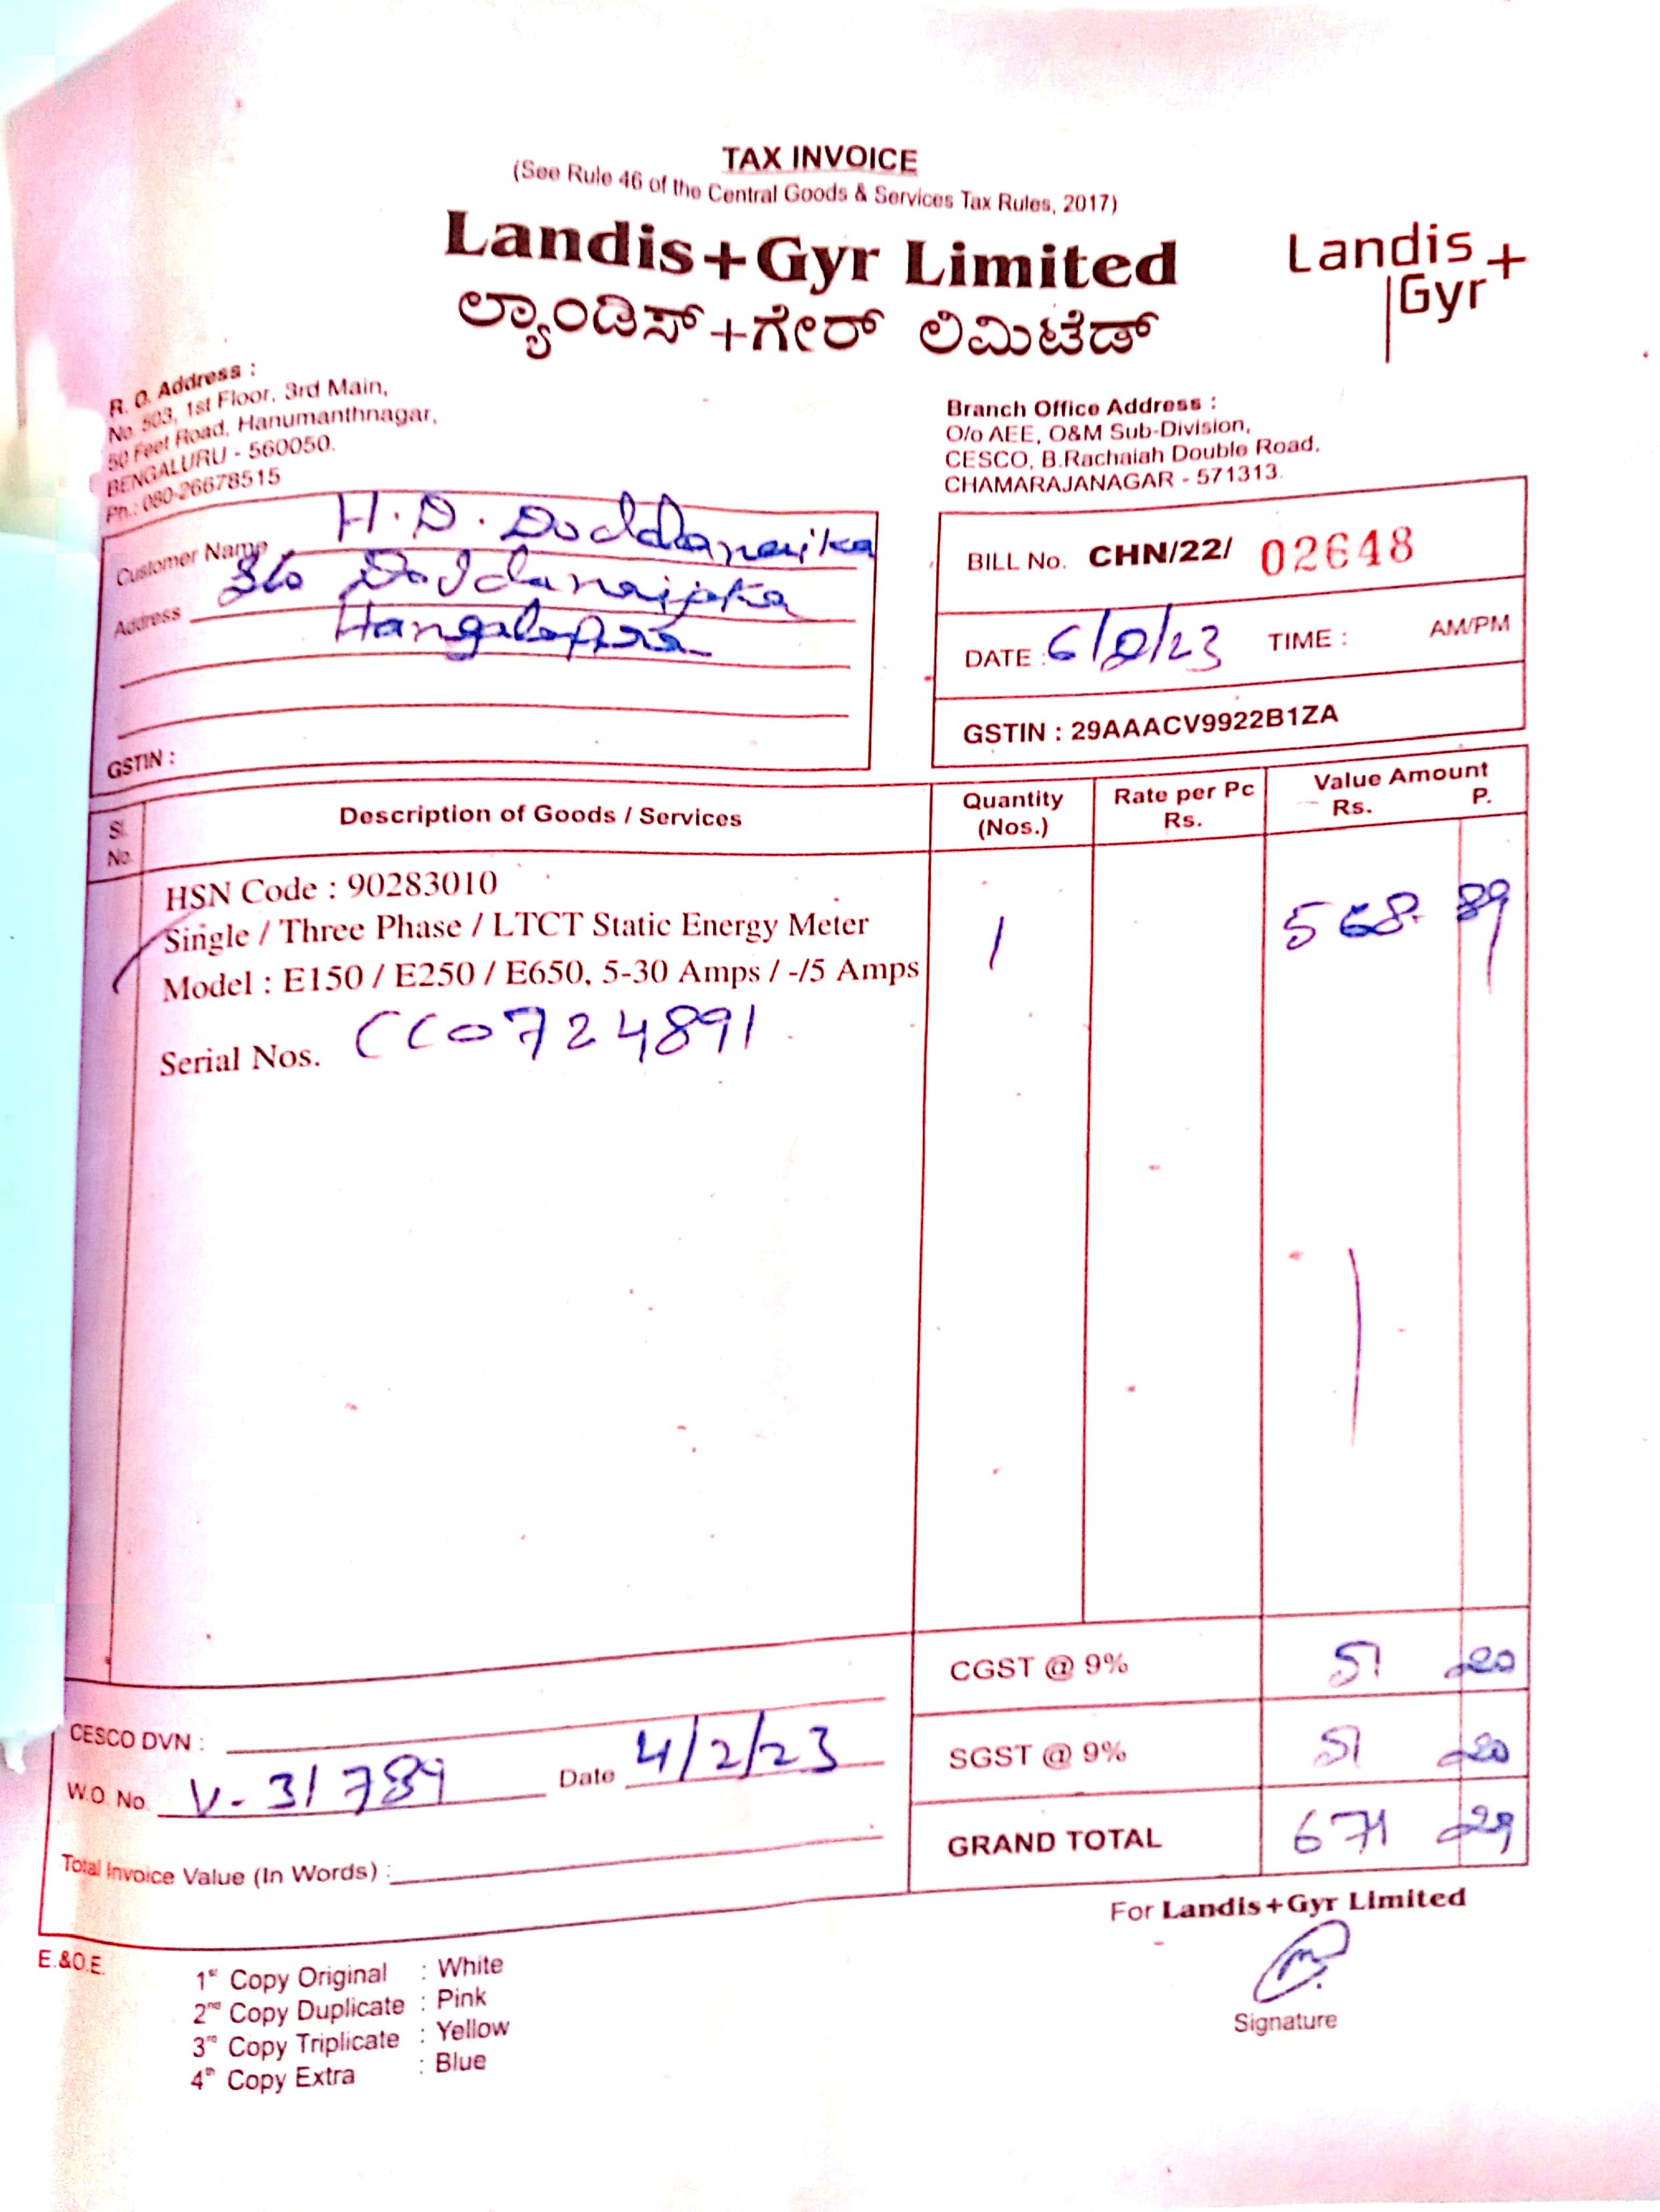 TAX INVOICE
(See Rule 46 of the Central Goods & Services Tax Rules, 2017)
Landis+Gyr Limited
ಲ್ಯಾಂಡಿಸ್+ಗೇರ್ ಲಿಮಿಟೆಡ್
Landis+
Gyr
R. O. Address :
No. 503, 1st Floor, 3rd Main,
50 Feet Road, Hanumanthnagar,
BENGALURU - 560050.
Ph.: 080-26678515
Branch Office Address :
O/o AEE, O&M Sub-Division,
CESCO, B.Rachaiah Double Road,
CHAMARAJANAGAR - 571313.
Customer Name H. D. Doddanaika
Address S/o Doddanaika
GSTIN :
BILL No. CHN/22/ 02648
DATE : 6/2/23 TIME : AM/PM
GSTIN : 29AAACV9922B1ZA
Sl. No. Description of Goods / Services Quantity (Nos.) Rate per Pc Rs. Value Amount Rs. P.
HSN Code : 90283010
Single / Three Phase / LTCT Static Energy Meter 1 568 89
Model : E150 / E250 / E650, 5-30 Amps / -/5 Amps
Serial Nos. CC0724891
CGST @ 9% 51 20
SGST @ 9% 51 20
GRAND TOTAL 671 29
CESCO DVN :
W.O. No. V-31789 Date 4/2/23
Total Invoice Value (In Words) :
For Landis+Gyr Limited
Signature
E.&O.E.
1st Copy Original : White
2nd Copy Duplicate : Pink
3rd Copy Triplicate : Yellow
4th Copy Extra : Blue